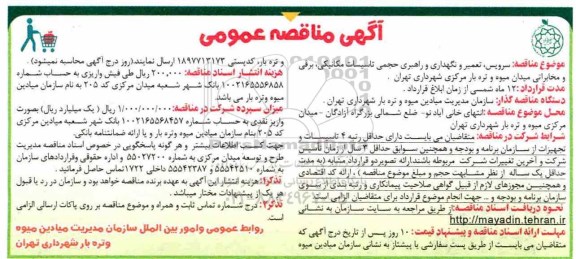 آگهی مناقصه عمومی
موضوع مناقصه: سرویس، تعمیر و نگهداری و راهبری حجمی تاسیسات مکانیکی، برقی
و مخابراتی میدان میوه و تره بار مرکزی شهرداری تهران .
مدت قرارداد: ۱۲ ماه شمسی از زمان ابلاغ قرارداد .
دستگاه مناقصه گذار: سازمان مدیریت میادین میوه و تره بار شهرداری تهران.
محل موضوع مناقصه: انتهای خیابان فدائیان اسلام - ضلع شمالی بزرگراه آزادگان - میدان
مرکزی میوه و تره بار شهرداری تهران
شرایط شرکت در مناقصه: متقاضیان می بایست دارای حداقل رتبه ۴ تاسیسات و
تجهیزات از سازمان برنامه و بودجه و همچنین سوابق حداقل ۳ سال از زمان تاسیس
شرکت و آخرین تغییرات شرکت مربوطه باشند. ارائه تصویر دو قرارداد مشابه (به مدت
حداقل یک ساله از نظر مشابهت حجم و مبلغ موضوع مناقصه) ، ارائه کد اقتصادی
و همچنین مجوزهای لازم از قبیل گواهی صلاحیت پیمانکاری و رتبه بندی از سوی
سازمان برنامه و بودجه و ... جهت انجام موضوع قرارداد برای متقاضیان الزامی است.
نحوه دریافت اسناد مناقصه: از طریق مراجعه به سایت سازمان به نشانی
http://mayadin.tehran.ir
مهلت ارائه اسناد مناقصه و پیشنهاد قیمت: ۱۰ روز پس از تاریخ درج آگهی که
متقاضیان می بایست از طریق پست سفارشی یا پیشتاز به نشانی سازمان میادین میوه
و تره بار، کدپستی ۱۸۹۷۷۱۳۱۷۳ ارسال نمایند.(روز درج آگهی محاسبه نمیشود) .
هزینه انتشار اسناد مناقصه: ۲۰۰,۰۰۰ ریال طی فیش واریزی به حساب شماره
۱۰۰۲۱۶۵۵۵۶۸۵۸ بانک شهر شعبه میدان مرکزی کد ۲۰۵ به نام سازمان میادین
میوه وتره بار می باشد.
میزان سپرده شرکت در مناقصه: ۱/۰۰۰/۰۰۰/۰۰۰ ریال ( یک میلیارد ریال) بصورت
واریز نقدی به حساب شماره ۱۰۰۲۱۶۵۵۶۸۴۵۷ بانک شهر شعبه میادین مرکزی
کد ۲۰۵ بنام سازمان میادین میوه وتره بار و یا ارائه ضمانتنامه بانکی.
جهت کسب اطلاعات بیشتر و هر گونه پاسخگویی در خصوص اسناد مناقصه مدیریت
طرح و توسعه میدان مرکزی به شماره ۵۵۰۲۷۲۰۰ و اداره حقوقی وقراردادهای سازمان
به شماره ۵۵۵۴۲۵۱۰ و ۵۵۵۴۲۳۸۷ داخلی ۱۷۲۲ تماس حاصل فرمائید .
تذکر۱: هزینه انتشار این آگهی به عهده برنده مناقصه خواهد بود و سازمان در رد یا قبول
هر یک از پیشنهادات مختار میباشد .
تذکر۲: درج شماره تماس ثابت و همراه و موضوع مناقصه بر روی پاکات ارسالی الزامی
است.
روابط عمومی وامور بین الملل سازمان مدیریت میادین میوه
وتره بار شهرداری تهران